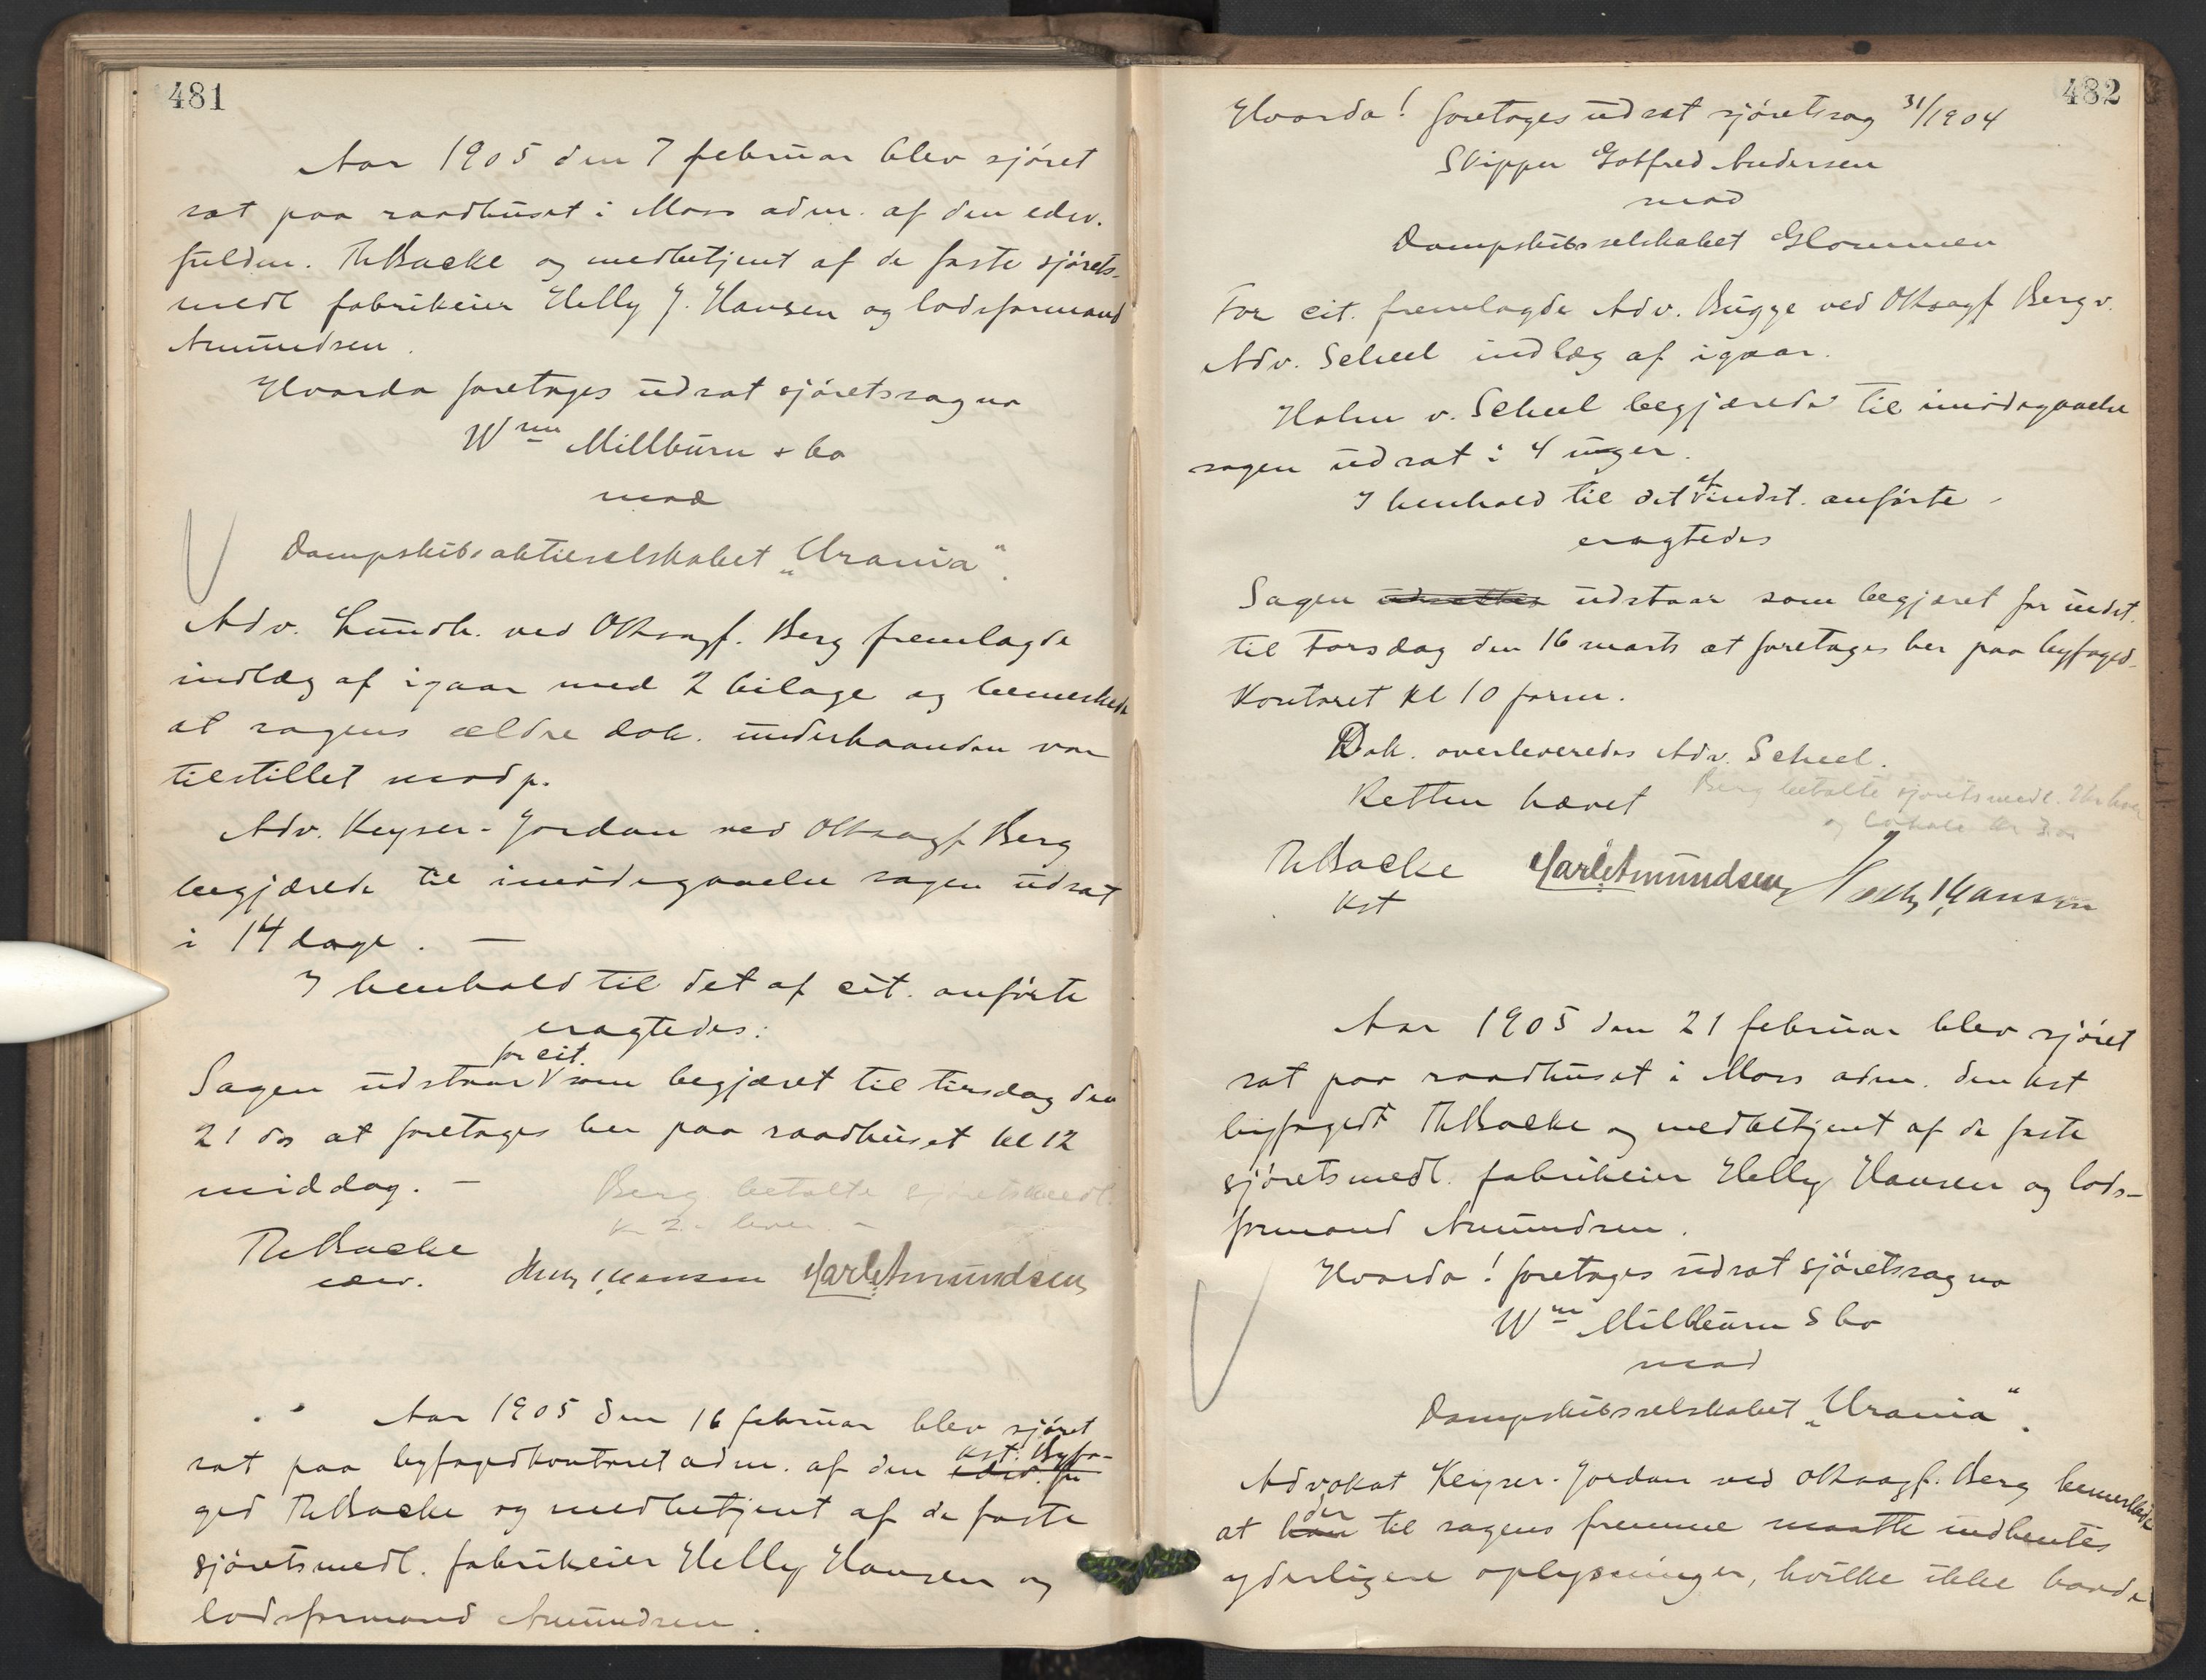 481
Aar 1905 den 7 februar blev sjöret
sat paa raadhuset i Moss adm. af den edsv.
fuldm. Th Backe og medbetjent af de faste sjörets-
medl fabrikeier Helly J. Hansen og lodsformand
Amundsen.
Hvorda foretoges udsat sjöretssag no
Wm Millburn & Co
mod
Dampskibsaktieselskabet "Urania".
Adv. Lundh. ved ORsagf. Berg fremlagde
indlæg af igaar med 2 bilage og bemerkede
at sagens ældre dok. underhaanden var
tilstillet modp.
Adv. Keyser-Jordan ved ORsagf Berg
begjærede til imödegaaelse sagen udsat
i 14 dage. —
I henhold til det af cit. anförte
eragtedes:
for cit.
Sagen udstaar som begjæret til tirsdag den
21 ds at foretages her paa raadhuset kl 12
middag. —
Berg betalte sjöretsmedl.
kr 2.- hver. -
Th Backe
edsv.
Helly J Hansen
Karl Amundsen
Aar 1905 den 16 februar blev sjöret
kst. Byfo-
sat paa byfogedkontoret adm. af den edsv. fu
ged Th Backe og medbetjent af de faste
sjöretsmedl. fabrikeier Helly Hansen og
lodsformand Amundsen.
482
Hvorda! foretoges udsat sjöretssag 31/1904
Skipper Gotfred Andersen
mod
Dampskibsselskabet Glommen
For cit. fremlagde Adv. Bugge ved ORsagf Berg v.
Adv. Scheel indlæg af igaar.
Holm v. Scheel begjærede til imödegaaelse
sagen udsat i 4 uger.
af
I henhold til det indst. anförte -
eragtedes
Sagen udsættes udstaar som begjæret for indst.
til Torsdag den 16 marts at foretages her paa byfoged-
kontoret kl 10 form.
Dok. overleveredes Adv. Scheel.
Retten hævet
Berg betalte sjöretsmedl. 2kr hver
og lokale kr
Th Backe
kst
Karl Amundsen
Helly J Hansen
Aar 1905 den 21 februar blev sjöret
sat paa raadhuset i Moss adm. den kst
byfoged Th Backe og medbetjent af de faste
sjöretsmedl. fabrikeier Helly Hansen og lods-
formand Amundsen.
Hvorda! foretoges udsat sjöretssag no
Wm Millburn & Co
mod
Dampskibsselskabet "Urania".
Advokat Keyser-Jordan ved ORsagf. Berg bemerkede
der
at han til sagens fremme maatte indhentes
yderligere oplysninger, hvilke ikke havde